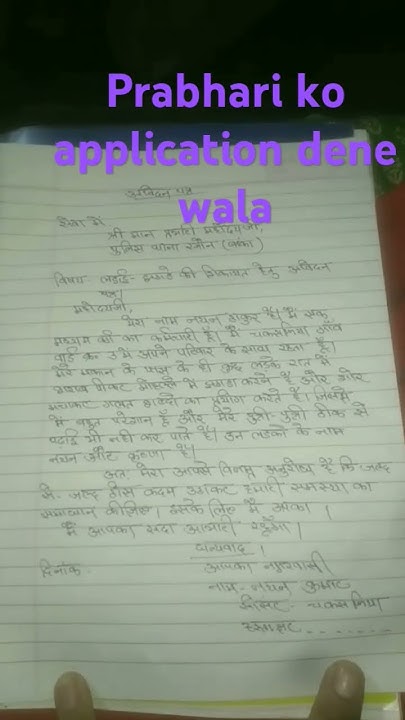 Prabhari ko
application dene
wala
आवेदन पत्र
सेवा में
श्री मान प्रभारी महोदयजी,
पुलिस थाना रजौन (बांका)
विषय- लड़ाई-झगड़े की शिकायत हेतु आवेदन
पत्र।
महोदयजी,
मेरा नाम नयन ठाकुर है। मैं एक
मध्यम वर्ग का कर्मचारी हूँ। मैं चकसनिया गाँव
वार्ड का उमे अपने परिवार के साथ रहता हूँ।
मेरे मकान के पास के ही कुछ लड़के रात में
शराब पीकर मोहल्ले में झगड़ा करते हैं और शोर
मचाकर गलत शब्दों का प्रयोग करते हैं। जिससे
मैं बहुत परेशान हूँ और मेरे ठीक से
पढ़ाई भी नही कर पाते हैं। उन लड़कों के नाम
और है।
अतः मेरा आपसे विनम्र अनुरोध है कि जल्द
से- जल्द ठोस कदम उठाकर हमारी समस्या का
समाधान कीजिए। इसके लिए मैं आपका।
मैं आपका सदा आभारी रहूँगा।
धन्यवाद।
दिनांक- आपका
नाम- नयन कुमार
चकसनिया
हस्ताक्षर- - - - - - -